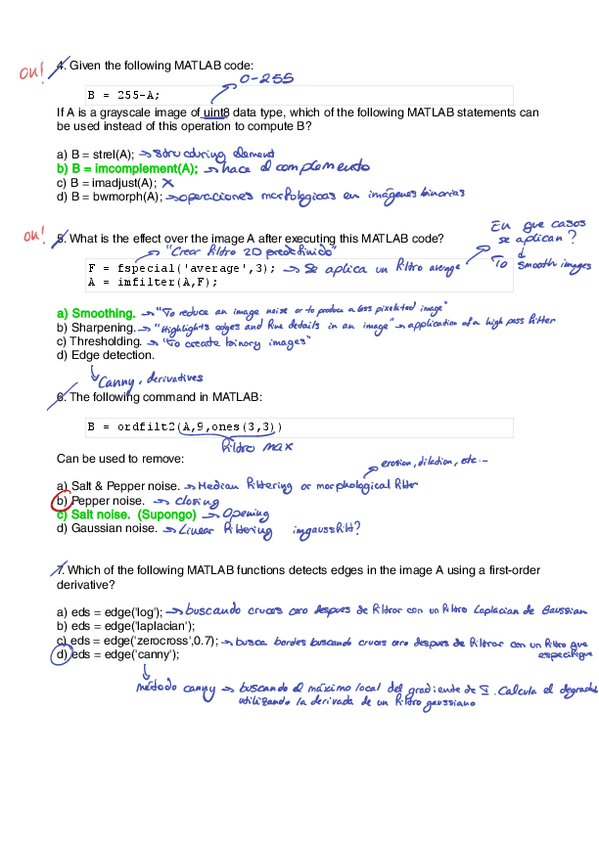 OK! 4. Given the following MATLAB code:
0-255
B = 255-A;
If A is a grayscale image of uint8 data type, which of the following MATLAB statements can
be used instead of this operation to compute B?
a) B = strel(A); → structuring element
b) B = imcomplement(A); → hace el complemento
c) B = imadjust(A); X
d) B = bwmorph(A); → operaciones morfologicas en imágenes binarias
OK! 5. What is the effect over the image A after executing this MATLAB code?
En que casos
se aplican?
"Crear filtro 2D predefinido"
F = fspecial('average',3); → Se aplica un filtro average
To smooth images
A = imfilter(A,F);
a) Smoothing. → "To reduce an image noise or to produce a less pixelated image"
b) Sharpening. → "Highlights edges and fine details in an image" → application of a high pass filter
c) Thresholding. → "To create binary images"
d) Edge detection.
Canny, derivatives
6. The following command in MATLAB:
B = ordfilt2(A,9,ones(3,3))
filtro max
Can be used to remove:
erosion, dilation, etc...
a) Salt & Pepper noise. → Median filtering or morphological filtr
b) Pepper noise. → Closing
c) Salt noise. (Supongo) → Opening
d) Gaussian noise. → Linear filtering imgaussfilt?
7. Which of the following MATLAB functions detects edges in the image A using a first-order
derivative?
a) eds = edge('log'); → buscando cruces cero despues de filtrar con un filtro Laplacian de Gaussian
b) eds = edge('laplacian');
c) eds = edge('zerocross',0.7); → busca bordes buscando cruces cero despues de filtrar con un filtro que
especifique
d) eds = edge('canny');
método canny → buscando el máximo local del gradiente de I. Calcula el degradado
utilizando la derivada de un filtro gaussiano